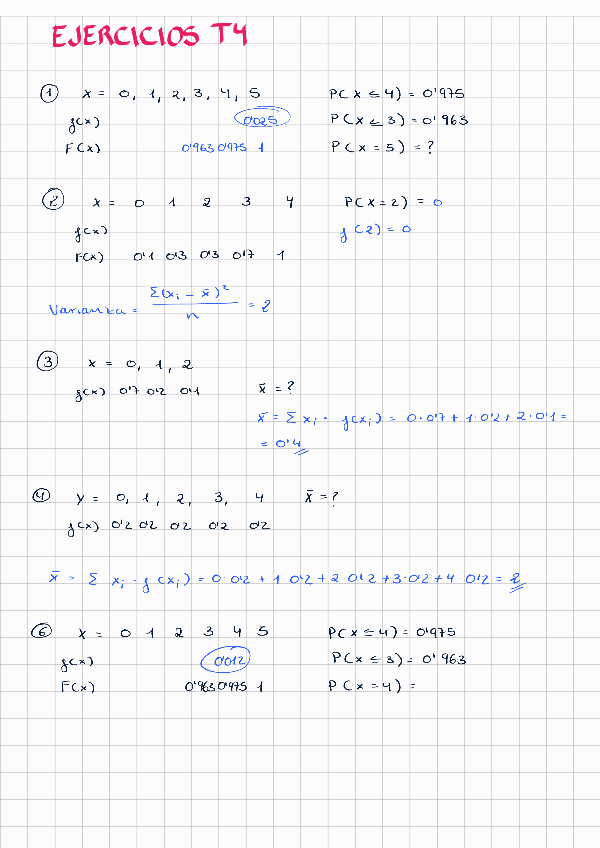 EJERCICIOS T4
① X = 0, 1, 2, 3, 4, 5 P(X ≤ 4) = 0'975
f(x) 0'025 P(X ≤ 3) = 0'963
F(x) 0'963 0'975 1 P(X = 5) = ?
② X = 0 1 2 3 4 P(X = 2) = 0
f(x) f(2) = 0
F(x) 0'1 0'3 0'3 0'7 1
Varianza = Σ(xᵢ - x̄)² / n = 2
③ X = 0, 1, 2
f(x) 0'7 0'2 0'1 x̄ = ?
x̄ = Σ xᵢ · f(xᵢ) = 0·0'7 + 1·0'2 + 2·0'1 =
= 0'4
④ Y = 0, 1, 2, 3, 4 x̄ = ?
f(x) 0'2 0'2 0'2 0'2 0'2
x̄ = Σ xᵢ · f(xᵢ) = 0·0'2 + 1·0'2 + 2·0'2 + 3·0'2 + 4·0'2 = 2
⑥ X = 0 1 2 3 4 5 P(X ≤ 4) = 0'975
f(x) 0'012 P(X ≤ 3) = 0'963
F(x) 0'963 0'975 1 P(X = 4) =